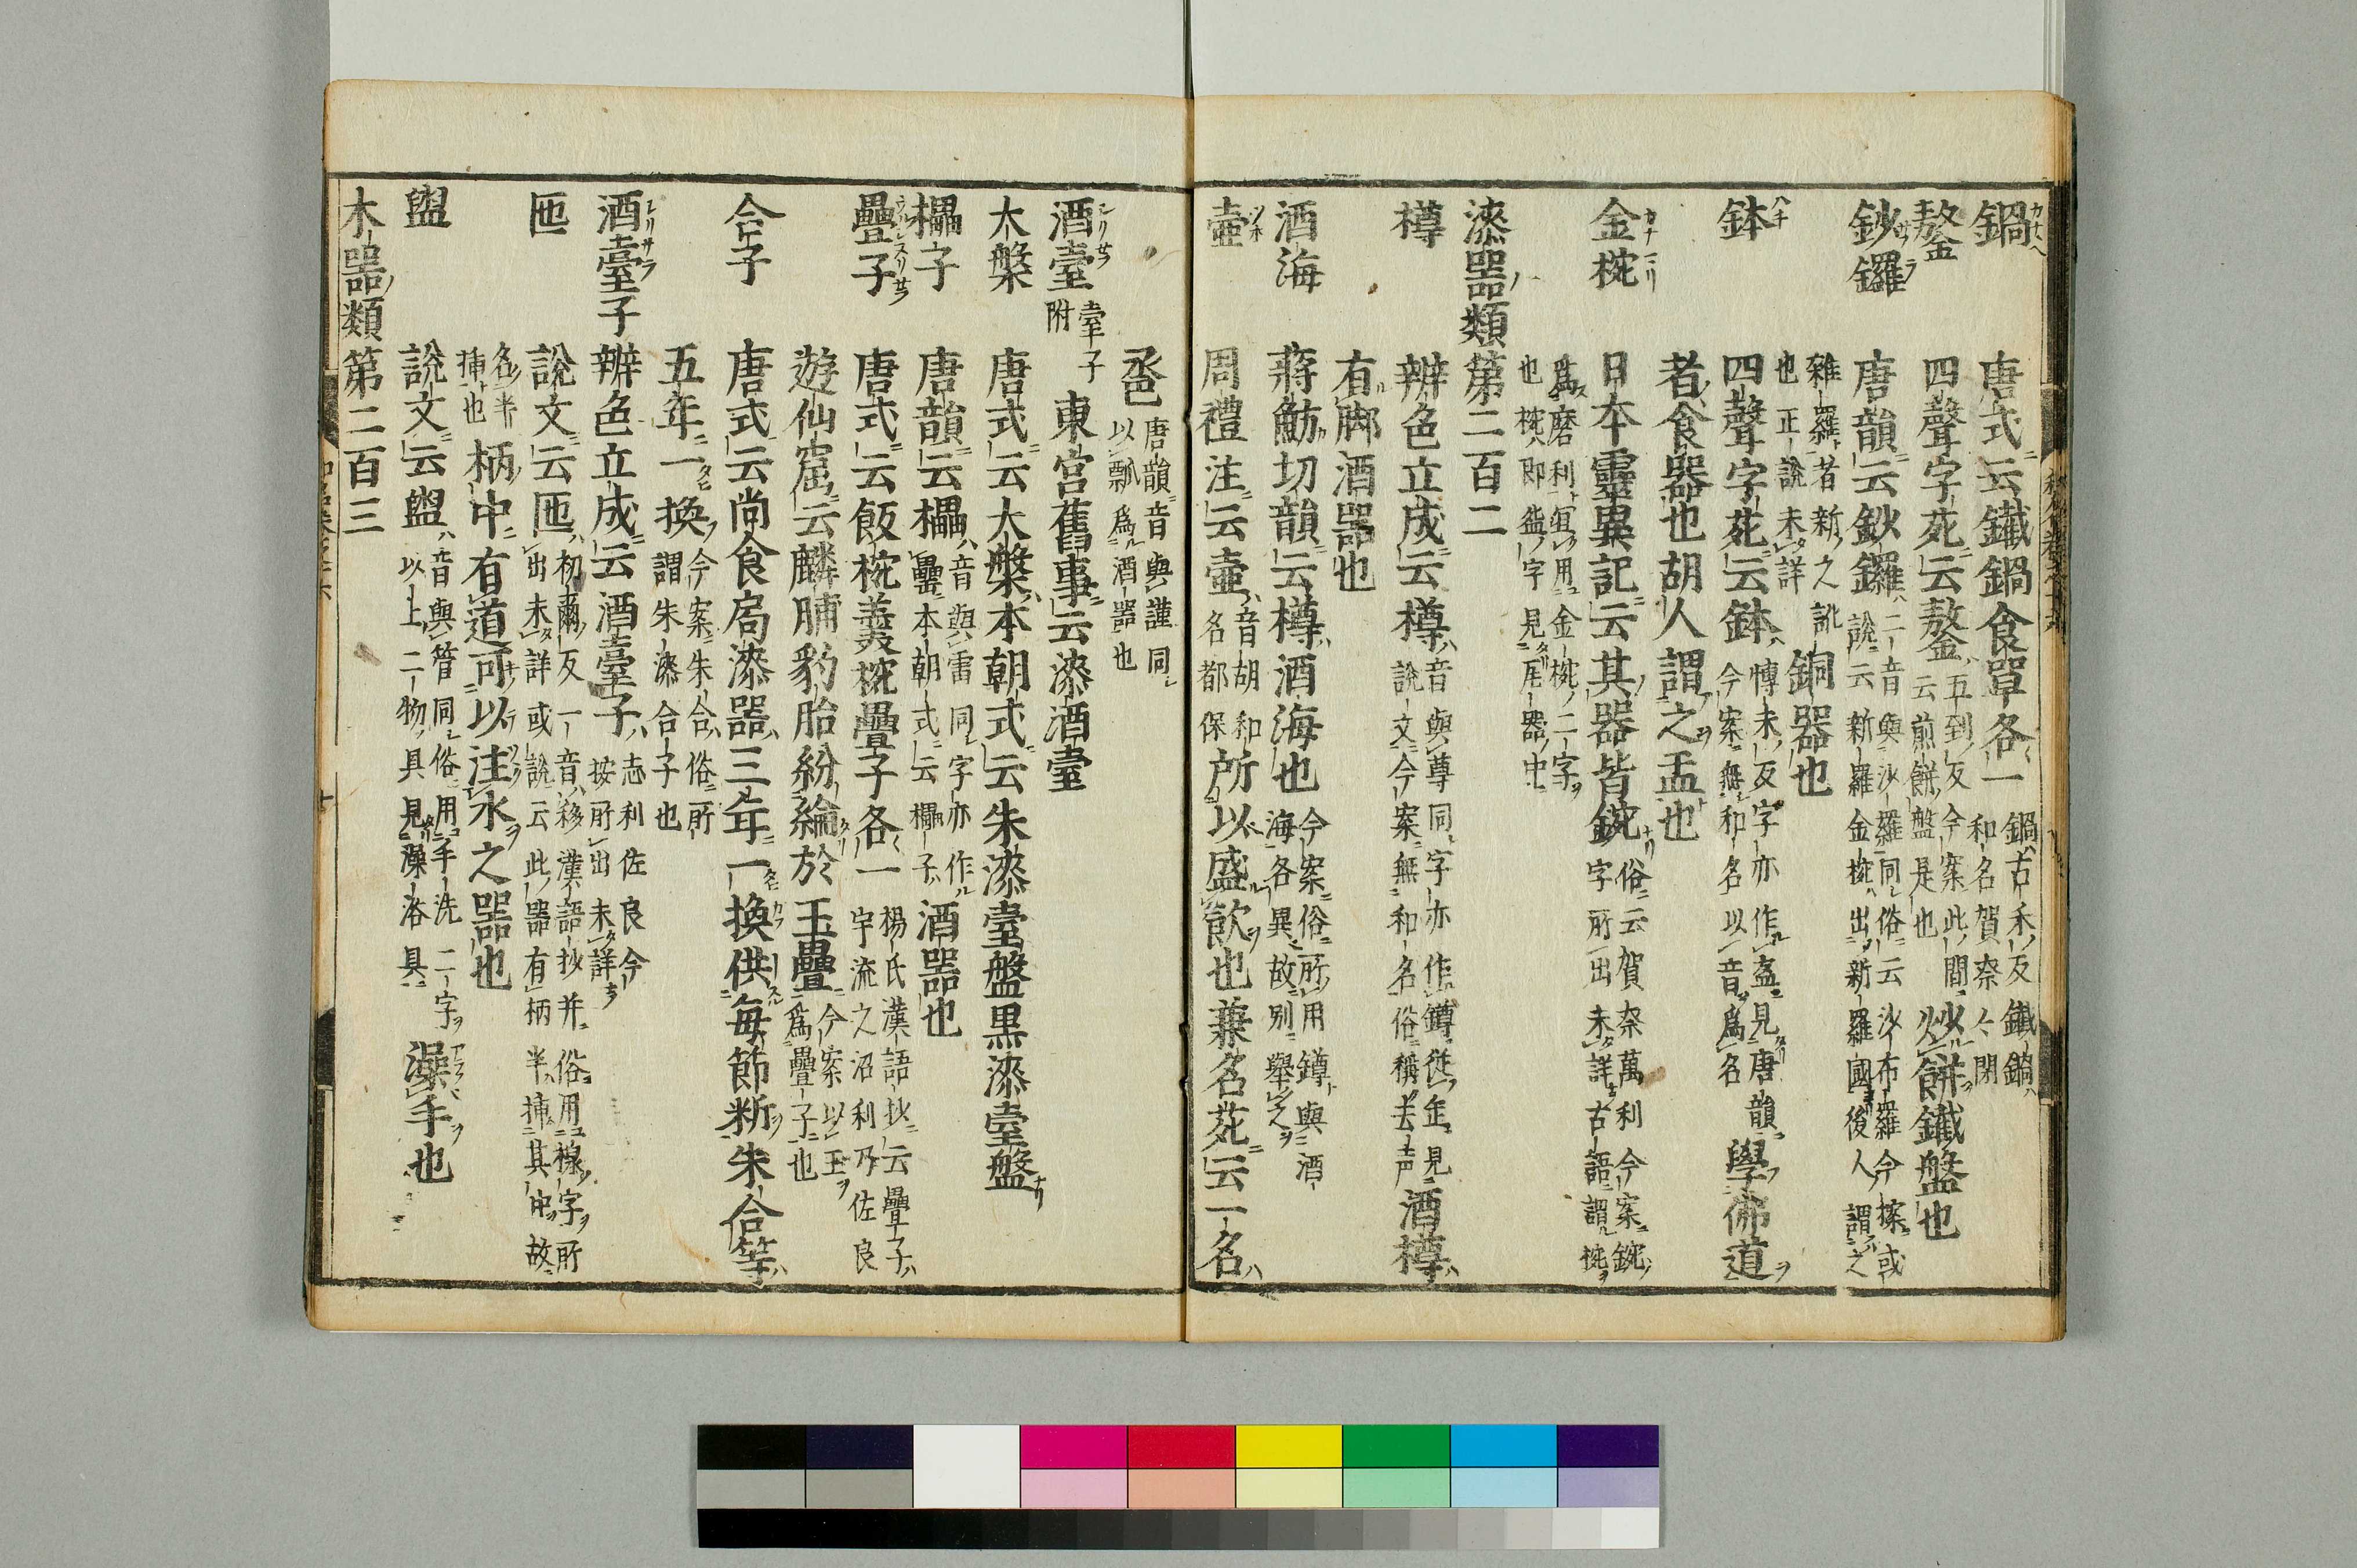 鍋 唐式云鐵鍋食單各一 鍋古禾反 鐵鍋 和名賀奈々閉
鏊 四聲字苑云鏊 五到反 今案此間云煎餅盤是也 炒餅鐵盤也
鈔鑼 唐韻云鈔鑼 二音與沙羅同 俗云沙布羅 今按或說云新羅金椀出新羅國後人謂之
雜羅者新之訛也 正說未詳 銅器也
鉢 四聲字苑云鉢 博未反 字亦作盋 見唐韻 今案無和名以音爲名 學佛道
者食器也胡人謂之盂也
金椀 日本靈異記云其器皆鋺 俗云賀奈萬利 今案鋺字所出未詳 古語謂椀
爲磨利 宜用金椀二字也 椀即
漆器類第二百二
樽 辨色立成云樽 音與尊同 字亦作罇 說文今案無和名俗稱去声 酒樽
有脚酒器也
酒海 蔣魴切韻云樽酒海也 今案俗所用罇與酒海各異故別舉之
壺 周禮注云壺 音胡 和名都保 所以盛飲也兼名苑云一名
巹 唐韻音與謹同 以瓢爲酒器也
酒臺 臺子附 東宮舊事云漆酒臺
大槃 唐式云大槃本朝式云朱漆臺盤黒漆臺盤
櫑子 唐韻云櫑 音與雷同 字亦作罍 本朝式云櫑子 酒器也
疊子 唐式云飯椀羹椀疊子各一 楊氏漢語抄云疊子 宇流之沼利乃佐良
遊仙窟云麟脯豹胎紛綸於玉疊 今案以玉爲疊子也
合子 唐式云尚食局漆器三年一換供每節料朱合等
五年一換 今案朱合俗所謂朱漆合子也
酒臺子 辨色立成云酒臺子 志利佐良 今按所出未詳
匜 說文云匜 初爾反 一音移 漢語抄并俗用楾字所出未詳 或說云此器有柄半插其中故
名半插也 柄中有道可以注水之器也
盥 說文云盥 音與管同 俗用手洗二字 以上二物具見澡浴具 澡手也
木器類第二百三